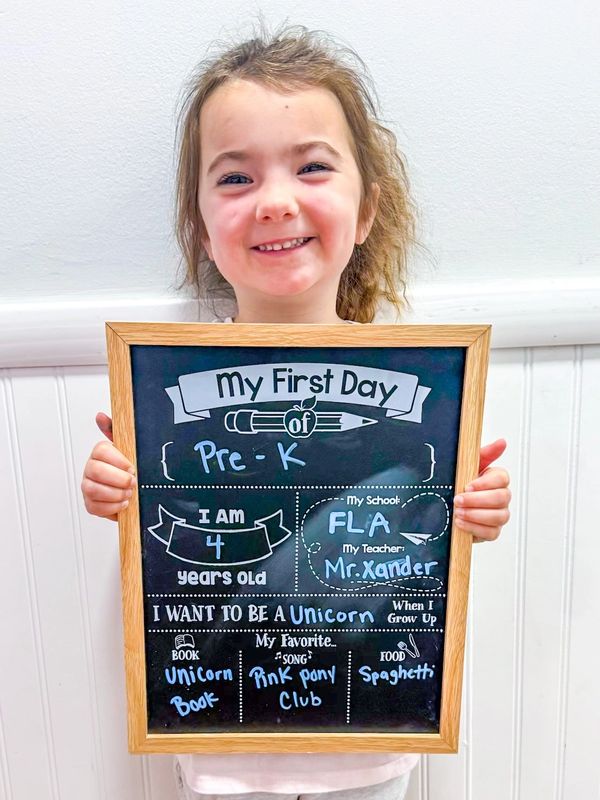 My First Day
of
Pre - K
I AM
4
years old
My School:
FLA
My Teacher:
Mr. Xander
I WANT TO BE A Unicorn When I Grow Up
My Favorite...
BOOK
Unicorn
Book
SONG
Pink pony
Club
FOOD
Spaghetti